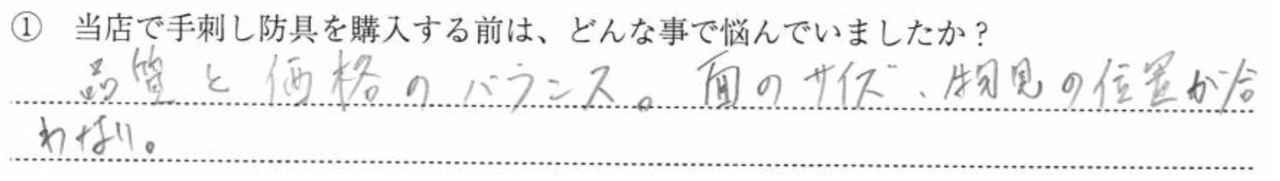 ① 当店で手刺し防具を購入する前は、どんな事で悩んでいましたか?
品質と価格のバランス。面のサイズ、物見の位置が合
わない。